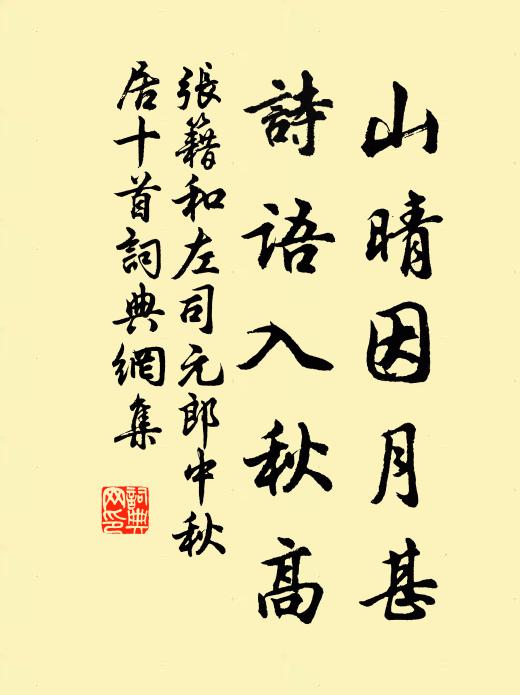 山晴因月甚
詩語入秋高
張籍和左司元郎中秋
居十首詞典網集
詞典
网印